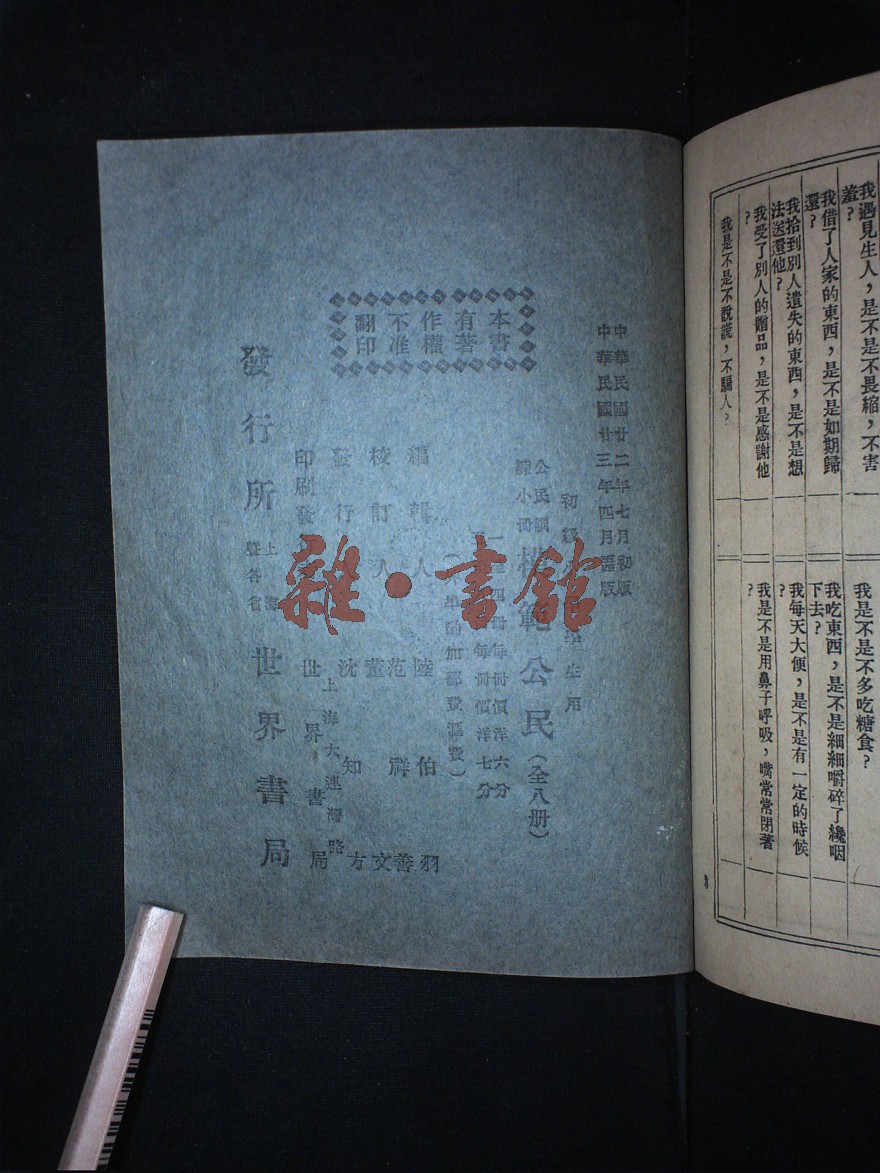 我遇見生人，是不是不畏縮，不害
羞？
我借了人家的東西，是不是如期歸
還？
我拾到別人遺失的東西，是不是想
法送還他？
我受了別人的贈品，是不是感謝他
？
我是不是不說謊，不騙人？
我是不是不多吃糖食？
我吃東西，是不是細細嚼碎了纔咽
下去？
我每天大便，是不是有一定的時候
？
我是不是用鼻子呼吸，嘴常常閉著
？
3
中華民國廿二年七月初版
中華民國廿三年四月版
初級學生用
公民訓
練小冊
模範公民（全八册）
一四冊每冊價洋六分
每冊價洋七分
本書
有著
作權
不准
翻印
編輯人 陸伯羽
校訂人 范祥善 董文
發行 沈知方
印刷發 世界書局
上海大連灣路
發行所
上海
暨各省
世界書局
雜·書館